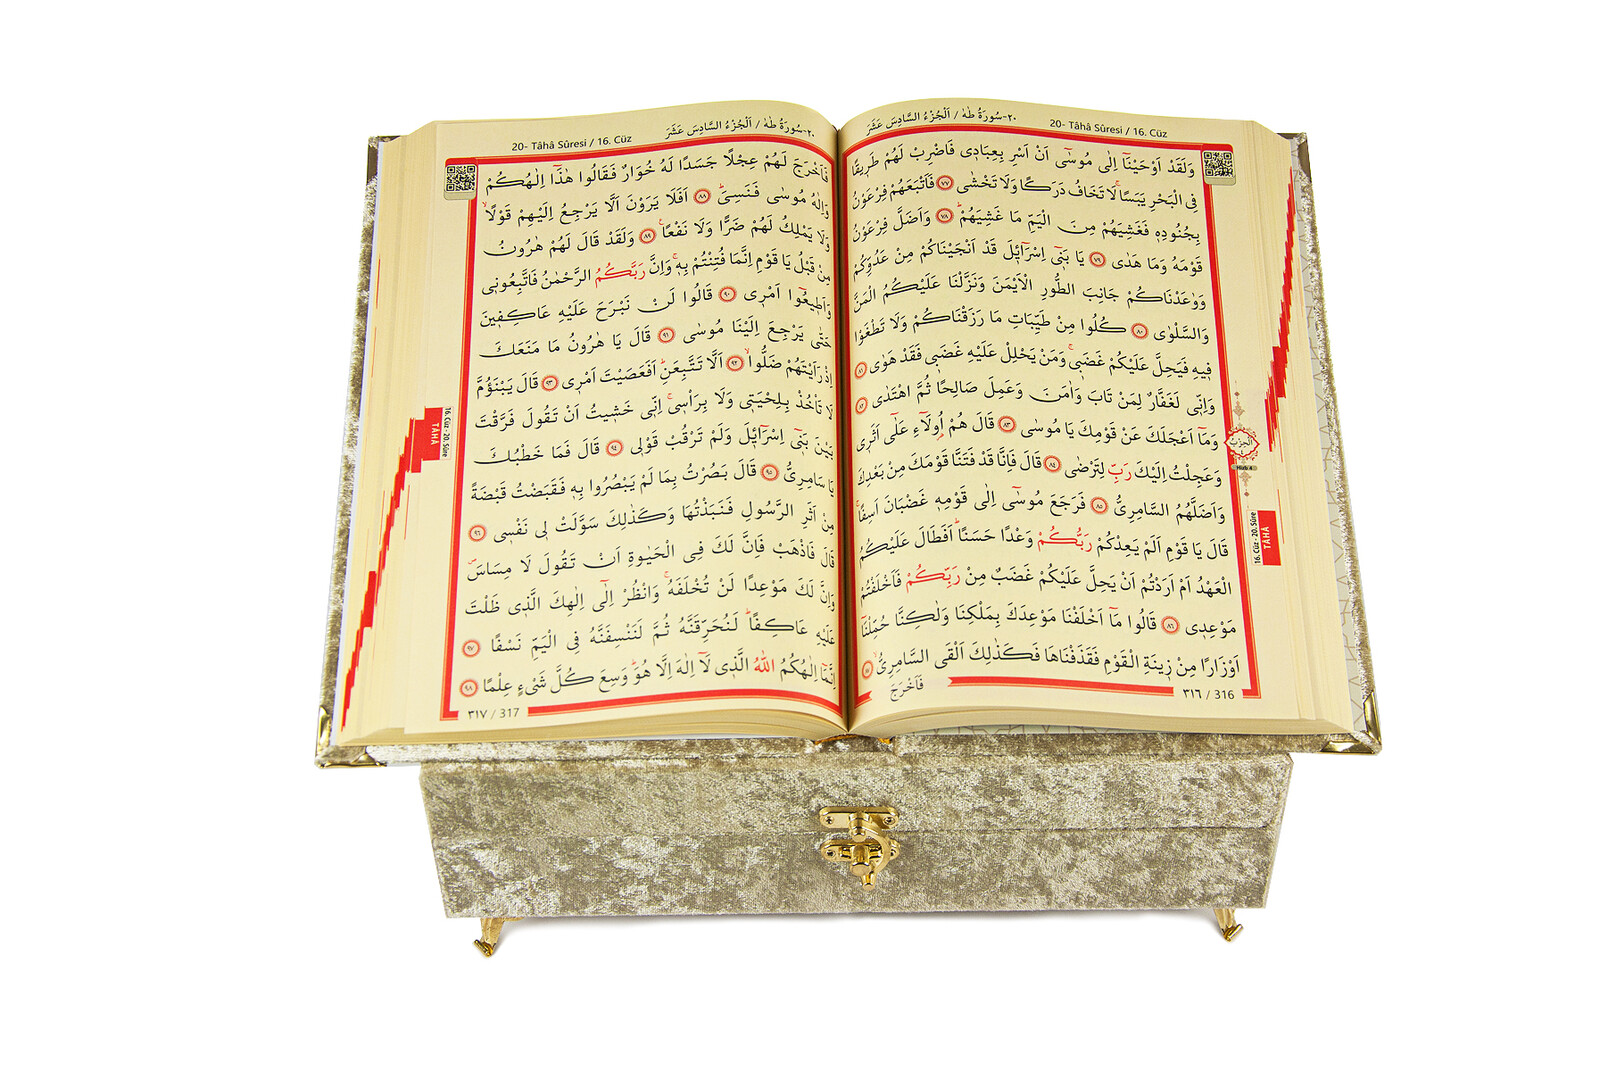 ٢٠-سُورَةُ طٰهٰ / اَلْجُزْءُ السَّادِسَ عَشَرَ
20- Tâhâ Sûresi / 16. Cüz
وَلَقَدْ اَوْحَيْنَٓا اِلٰى مُوسٰٓى اَنْ اَسْرِ بِعِبَاد۪ي فَاضْرِبْ لَهُمْ طَر۪يقًا
فِي الْبَحْرِ يَبَسًاۙ لَا تَخَافُ دَرَكًا وَلَا تَخْشٰى ﴿٧٧﴾ فَاَتْبَعَهُمْ فِرْعَوْنُ
بِجُنُودِه۪ فَغَشِيَهُمْ مِنَ الْيَمِّ مَا غَشِيَهُمْۜ ﴿٧٨﴾ وَاَضَلَّ فِرْعَوْنُ
قَوْمَهُ وَمَا هَدٰى ﴿٧٩﴾ يَا بَن۪ٓي اِسْرَٓائ۪لَ قَدْ اَنْجَيْنَاكُمْ مِنْ عَدُوِّكُمْ
وَوٰعَدْنَاكُمْ جَانِبَ الطُّورِ الْاَيْمَنَ وَنَزَّلْنَا عَلَيْكُمُ الْمَنَّ
وَالسَّلْوٰى ﴿٨٠﴾ كُلُوا مِنْ طَيِّبَاتِ مَا رَزَقْنَاكُمْ وَلَا تَطْغَوْا
ف۪يهِ فَيَحِلَّ عَلَيْكُمْ غَضَب۪يۚ وَمَنْ يَحْلِلْ عَلَيْهِ غَضَب۪ي فَقَدْ هَوٰى ﴿٨١﴾
وَاِنّ۪ي لَغَفَّارٌ لِمَنْ تَابَ وَاٰمَنَ وَعَمِلَ صَالِحًا ثُمَّ اهْتَدٰى ﴿٨٢﴾
وَمَٓا اَعْجَلَكَ عَنْ قَوْمِكَ يَا مُوسٰى ﴿٨٣﴾ قَالَ هُمْ اُو۬لَٓاءِ عَلٰٓى اَثَر۪ي
وَعَجِلْتُ اِلَيْكَ رَبِّ لِتَرْضٰى ﴿٨٤﴾ قَالَ فَاِنَّا قَدْ فَتَنَّا قَوْمَكَ مِنْ بَعْدِكَ
وَاَضَلَّهُمُ السَّامِرِيُّ ﴿٨٥﴾ فَرَجَعَ مُوسٰٓى اِلٰى قَوْمِه۪ غَضْبَانَ اَسِفًاۚ
قَالَ يَا قَوْمِ اَلَمْ يَعِدْكُمْ رَبُّكُمْ وَعْدًا حَسَنًاۜ اَفَطَالَ عَلَيْكُمُ
الْعَهْدُ اَمْ اَرَدْتُمْ اَنْ يَحِلَّ عَلَيْكُمْ غَضَبٌ مِنْ رَبِّكُمْ فَاَخْلَفْتُمْ
مَوْعِد۪ي ﴿٨٦﴾ قَالُوا مَٓا اَخْلَفْنَا مَوْعِدَكَ بِمَلْكِنَا وَلٰكِنَّا حُمِّلْنَٓا
اَوْزَارًا مِنْ ز۪ينَةِ الْقَوْمِ فَقَذَفْنَاهَا فَكَذٰلِكَ اَلْقَى السَّامِرِيُّۙ ﴿٨٧﴾
فَاَخْرَجَ
٣١٦ / 316
الْحِزْبُ
٤
Hizb 4
16. Cüz - 20. Sûre
TÂHÂ
٢٠-سُورَةُ طٰهٰ / اَلْجُزْءُ السَّادِسَ عَشَرَ
20- Tâhâ Sûresi / 16. Cüz
فَاَخْرَجَ لَهُمْ عِجْلًا جَسَدًا لَهُ خُوَارٌ فَقَالُوا هٰذَٓا اِلٰهُكُمْ
وَاِلٰهُ مُوسٰى فَنَسِيَۜ ﴿٨٨﴾ اَفَلَا يَرَوْنَ اَلَّا يَرْجِعُ اِلَيْهِمْ قَوْلًاۙ
وَلَا يَمْلِكُ لَهُمْ ضَرًّا وَلَا نَفْعًا۟ ﴿٨٩﴾ وَلَقَدْ قَالَ لَهُمْ هٰرُونُ
مِنْ قَبْلُ يَا قَوْمِ اِنَّمَا فُتِنْتُمْ بِه۪ۚ وَاِنَّ رَبَّكُمُ الرَّحْمٰنُ فَاتَّبِعُون۪ي
وَاَط۪يعُٓوا اَمْر۪ي ﴿٩٠﴾ قَالُوا لَنْ نَبْرَحَ عَلَيْهِ عَاكِف۪ينَ
حَتّٰى يَرْجِعَ اِلَيْنَا مُوسٰى ﴿٩١﴾ قَالَ يَا هٰرُونُ مَا مَنَعَكَ
اِذْ رَاَيْتَهُمْ ضَلُّواۙ ﴿٩٢﴾ اَلَّا تَتَّبِعَنِۜ اَفَعَصَيْتَ اَمْر۪ي ﴿٩٣﴾ قَالَ يَبْنَؤُ۬مَّ
لَا تَأْخُذْ بِلِحْيَت۪ي وَلَا بِرَأْس۪يۚ اِنّ۪ي خَش۪يتُ اَنْ تَقُولَ فَرَّقْتَ
بَيْنَ بَن۪ٓي اِسْرَٓائ۪لَ وَلَمْ تَرْقُبْ قَوْل۪ي ﴿٩٤﴾ قَالَ فَمَا خَطْبُكَ
يَا سَامِرِيُّ ﴿٩٥﴾ قَالَ بَصُرْتُ بِمَا لَمْ يَبْصُرُوا بِه۪ فَقَبَضْتُ قَبْضَةً
مِنْ اَثَرِ الرَّسُولِ فَنَبَذْتُهَا وَكَذٰلِكَ سَوَّلَتْ ل۪ي نَفْس۪ي ﴿٩٦﴾
قَالَ فَاذْهَبْ فَاِنَّ لَكَ فِي الْحَيٰوةِ اَنْ تَقُولَ لَا مِسَاسَۖ
وَاِنَّ لَكَ مَوْعِدًا لَنْ تُخْلَفَهُۚ وَانْظُرْ اِلٰٓى اِلٰهِكَ الَّذ۪ي ظَلْتَ
عَلَيْهِ عَاكِفًاۜ لَنُحَرِّقَنَّهُ ثُمَّ لَنَنْسِفَنَّهُ فِي الْيَمِّ نَسْفًا ﴿٩٧﴾
اِنَّمَٓا اِلٰهُكُمُ اللّٰهُ الَّذ۪ي لَٓا اِلٰهَ اِلَّا هُوَۜ وَسِعَ كُلَّ شَيْءٍ عِلْمًا ﴿٩٨﴾
٣١٧ / 317
16. Cüz - 20. Sûre
TÂHÂ